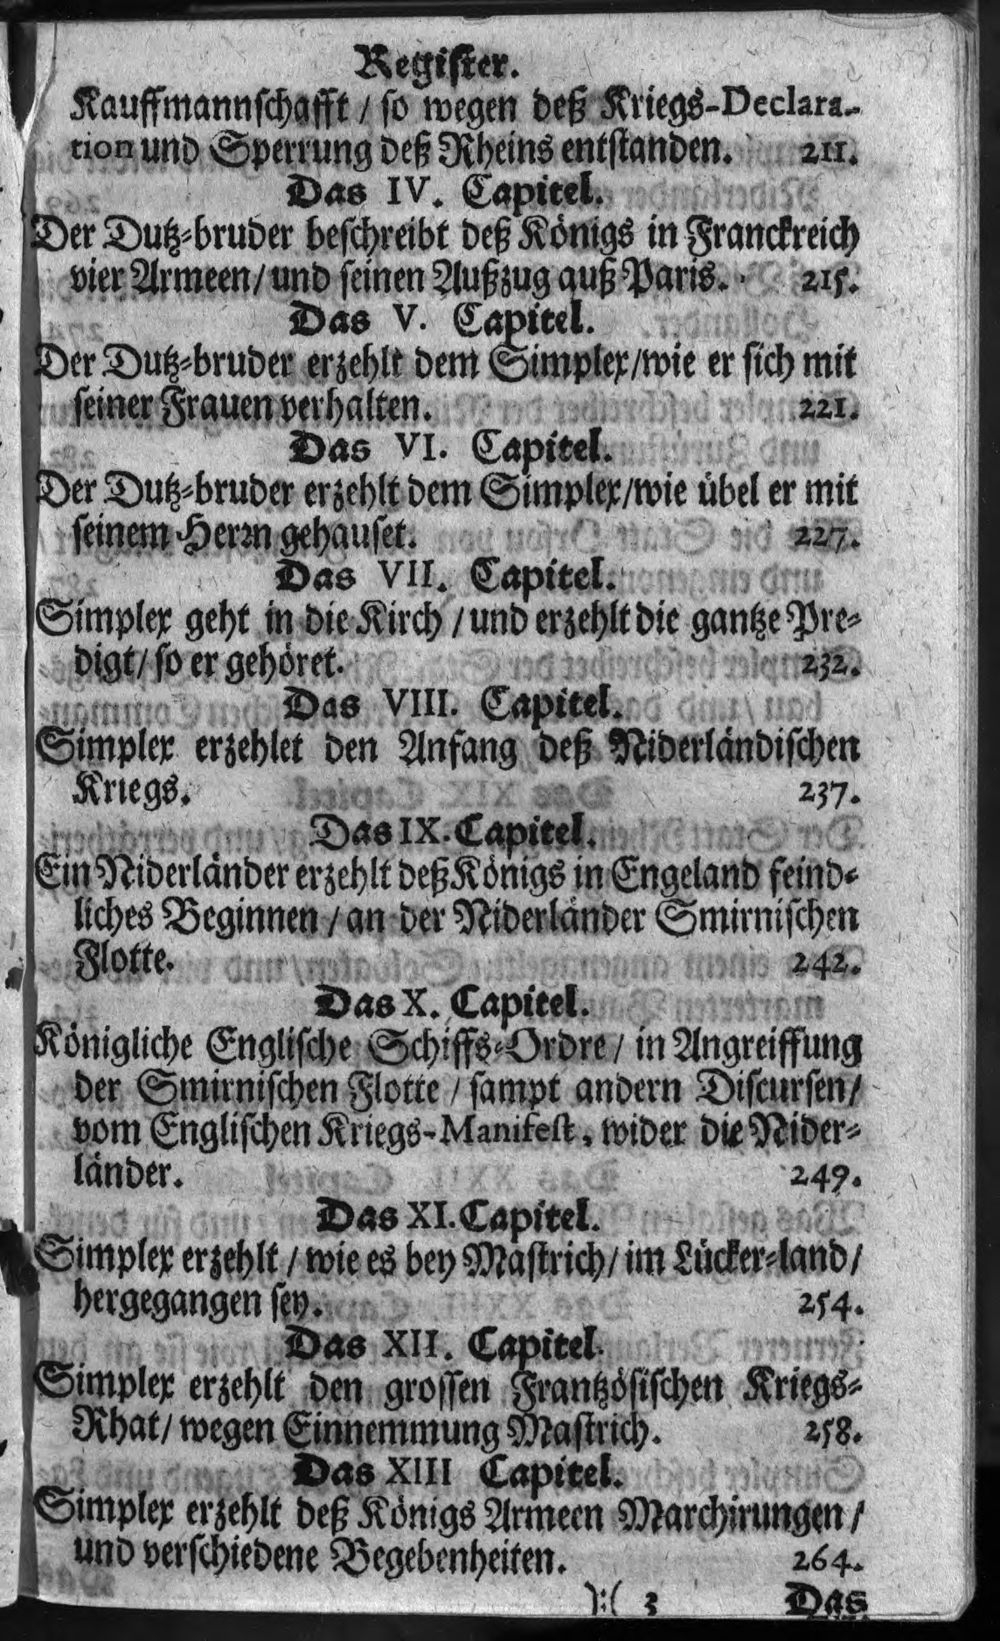 Register.
Kauffmannschafft / so wegen deß Kriegs-Declara-
tion und Sperrung deß Rheins entstanden. 211.
Das IV. Capitel.
Der Dutz-bruder beschreibt deß Königs in Franckreich
vier Armeen / und seinen Außzug auß Paris. 215.
Das V. Capitel.
Der Dutz-bruder erzehlt dem Simplex / wie er sich mit
seiner Frauen verhalten. 221.
Das VI. Capitel.
Der Dutz-bruder erzehlt dem Simplex / wie übel er mit
seinem Herrn gehauset. 227.
Das VII. Capitel.
Simplex geht in die Kirch / und erzehlt die gantze Pre-
digt / so er gehöret. 232.
Das VIII. Capitel.
Simplex erzehlet den Anfang deß Niderländischen
Kriegs. 237.
Das IX. Capitel.
Ein Niderländer erzehlt deß Königs in Engeland feind-
liches Beginnen / an der Niderländer Smirnischen
Flotte. 242.
Das X. Capitel.
Königliche Englische Schiffs-Ordre / in Angreiffung
der Smirnischen Flotte / sampt andern Discursen /
vom Englischen Kriegs-Manifest, wider die Nider-
länder. 249.
Das XI. Capitel.
Simplex erzehlt / wie es bey Mastrich / im Lücker-land /
hergegangen sey. 254.
Das XII. Capitel.
Simplex erzehlt den grossen Frantzösischen Kriegs-
Rhat / wegen Einnemmung Mastrich. 258.
Das XIII Capitel.
Simplex erzehlt deß Königs Armeen Marchirungen /
und verschiedene Begebenheiten. 264.
):( 3 Das